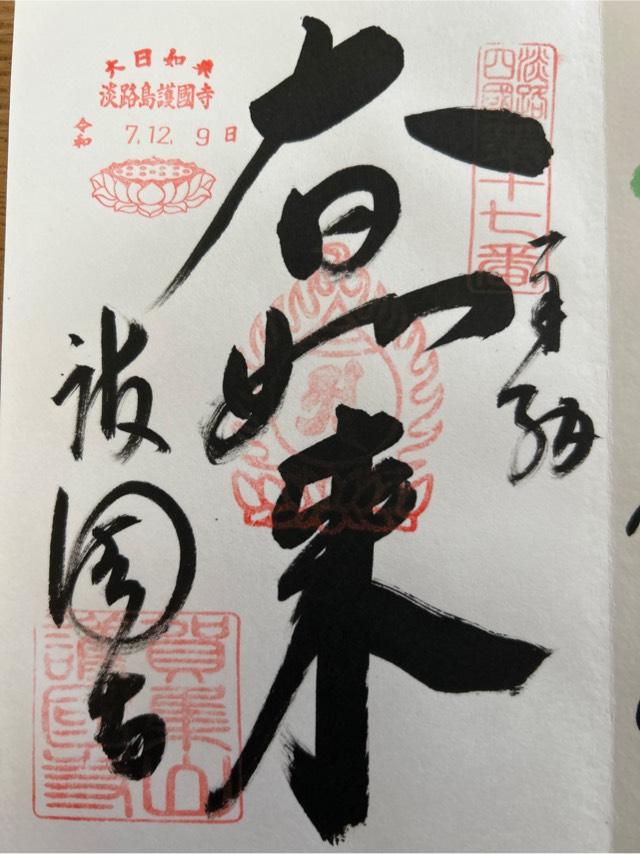 淡路
四國
十七番
大日如来
護国寺
大日如来
淡路島護國寺
令和 7.12. 9日
賀集山
護国寺